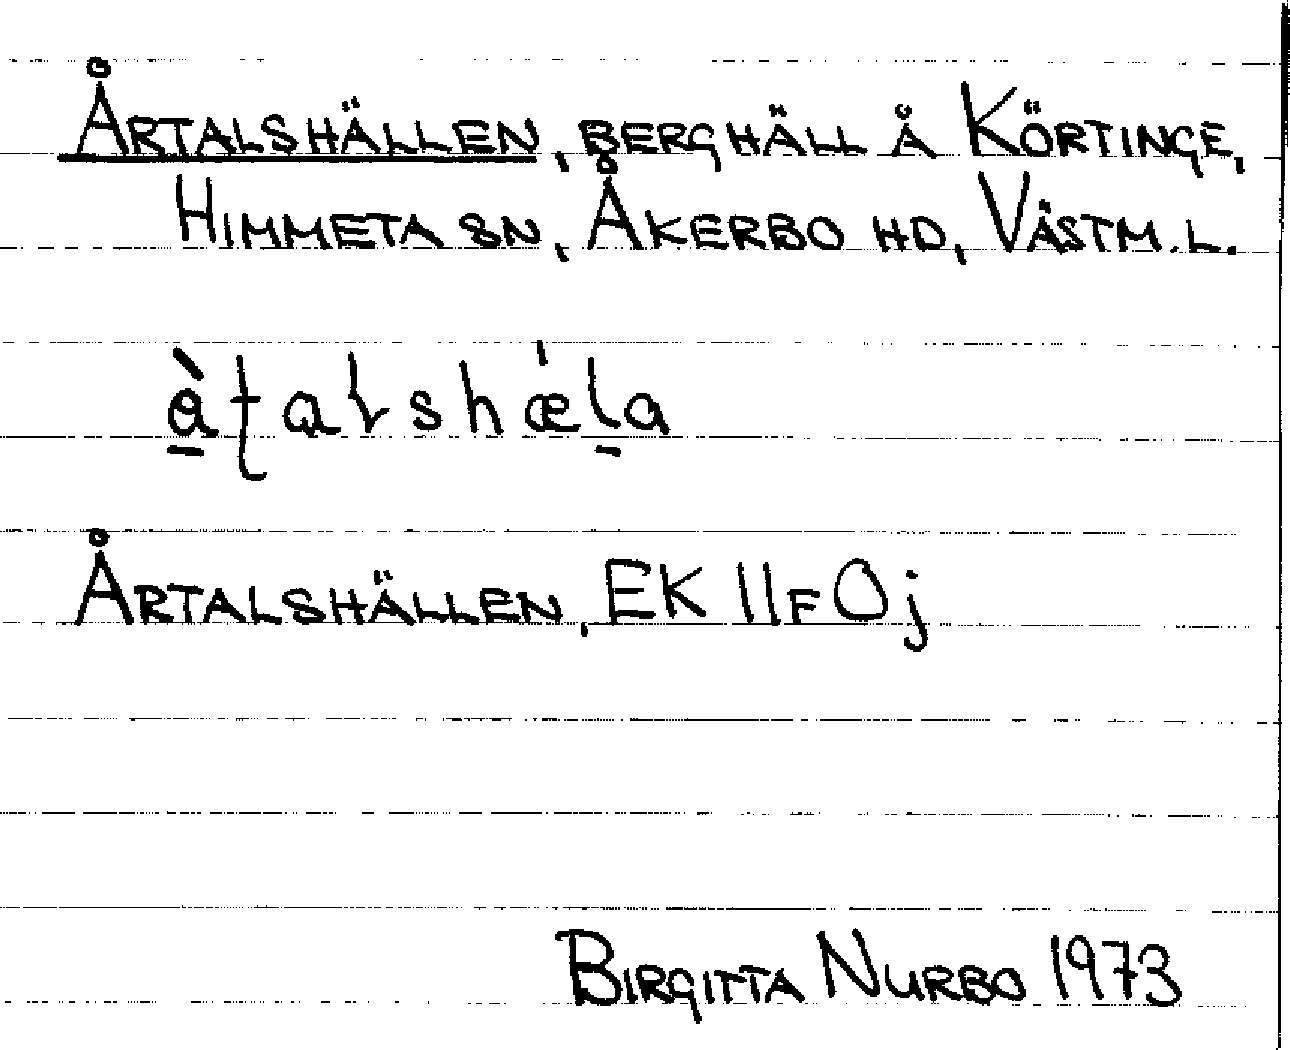 Årtalshällen, berghäll å Körtinge,
Himmeta sn, Åkerbo hd, Västm. l.
å̱̀ʈalshǽḻa
Årtalshällen, EK 11f0j
Birgitta Nurbo 1973